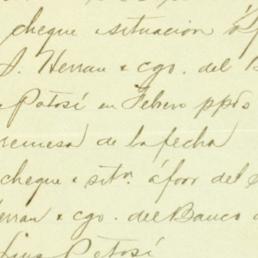 cheque & situacion áf
J. Herran & cgo. del B
Potosí en Febrero ppdo
remesa de la fecha
cheque & sitn. áfavor del
erran & cgo. del Banco
Potosí